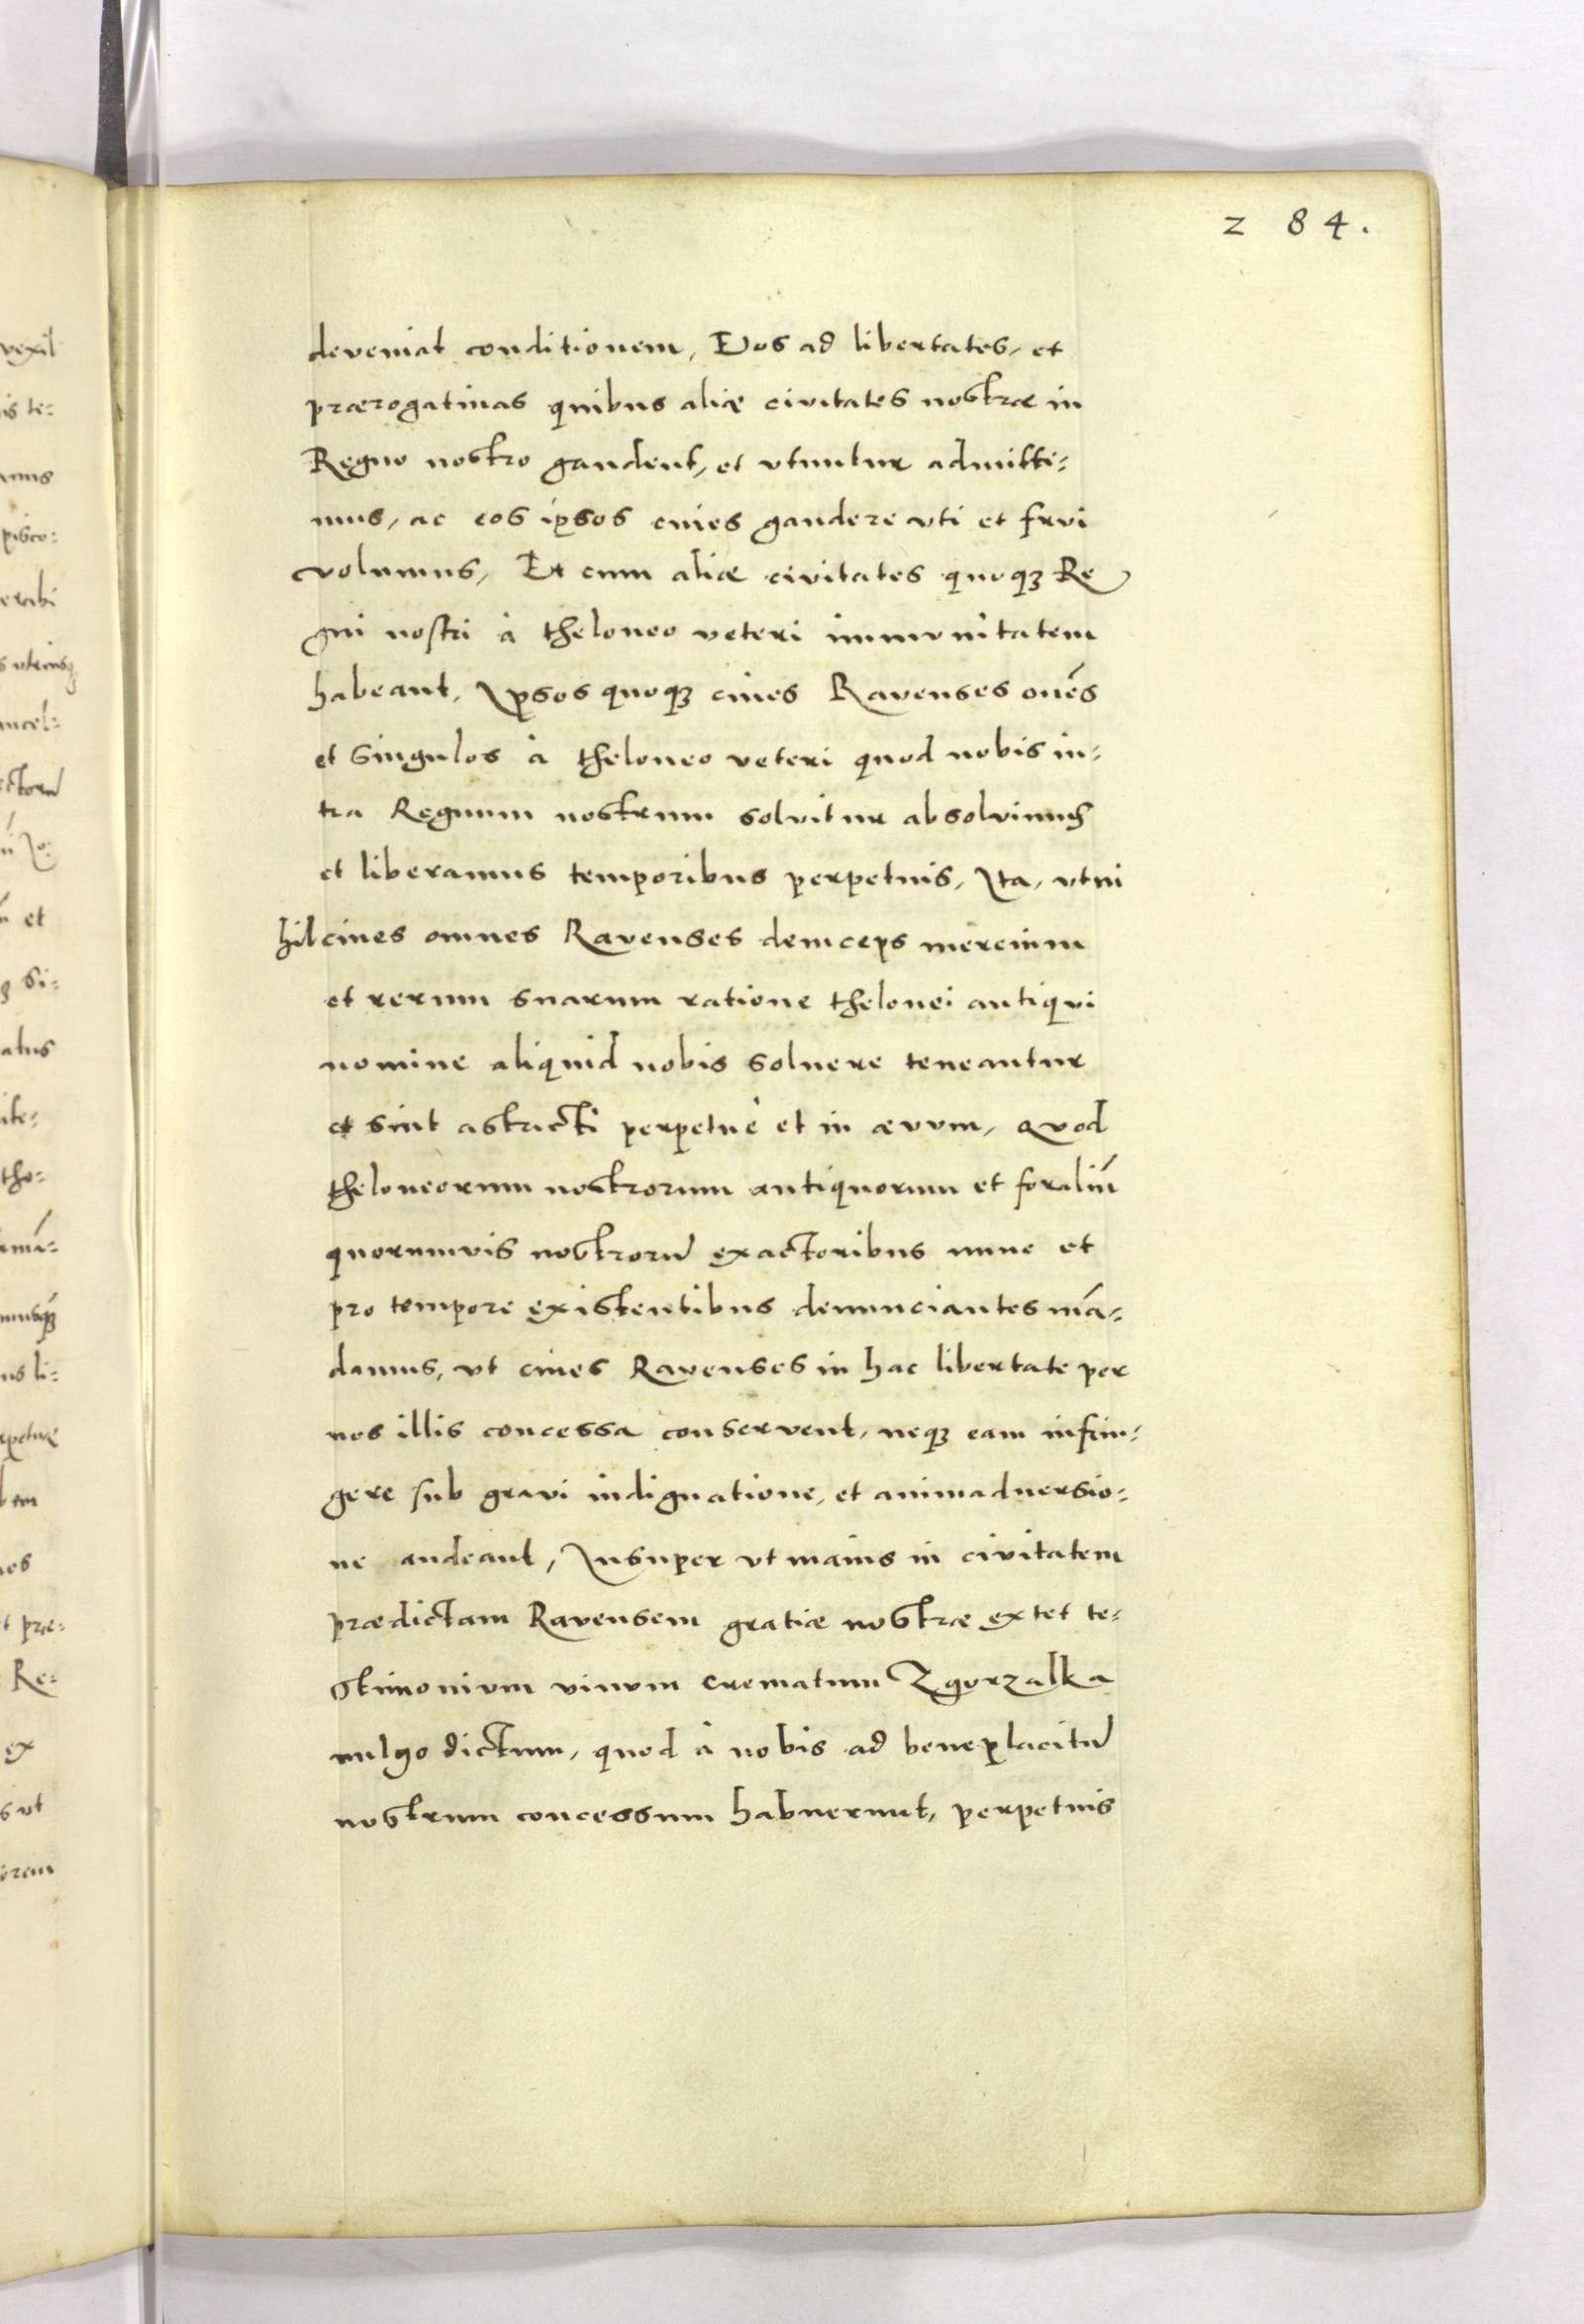 284.
deveniat conditionem, Eos ad libertates, et
prærogatiuas quibus aliæ civitates nostræ in
Regno nostro gaudent, et vtuntur admitti=
mus, ac eos ipsos ciues gaudere vti et frvi
volumus, Et cum aliæ civitates quoqȝ Re
gni nostri à theloneo veteri immvnitatem
habeant, Ipsos quoqȝ ciues Ravenses oẽs
et singulos à theloneo veteri quod nobis in=
tra Regnum nostrum solvitur absolvimus
et liberamus temporibus perpetuis, Ita, vt ni
hil ciues omnes Ravenses deinceps mercium
et rerum suarum ratione thelonei antiqvi
nomine aliquid nobis soluere teneantur
et sint astricti perpetuè et in ævvm, Qvod
theloneorum nostrorum antiquorum et foraliũ
quorumvis nostrorũ exactoribus nunc et
pro tempore existentibus denunciantes mã=
damus, vt ciues Ravenses in hac libertate per
nos illis concessa conservent, neqȝ eam infrin=
gere sub gravi indignatione, et animaduersio=
ne audeant, Insuper vt maius in civitatem
prædictam Ravensem gratiæ nostræ extet te=
stimonivm vinvm crematum Zgorzalka
uulgo dictum, quod à nobis ad beneplacitũ
nostrum concessum habuerunt, perpetuis
vexil
is te=
pisco=
et
si=
atus
tho=
li=
præ=
Re=
ex